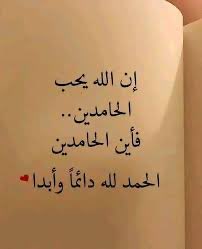 إن الله يحب
الحامدين..
فأين الحامدين
الحمد لله دائماً وأبدا